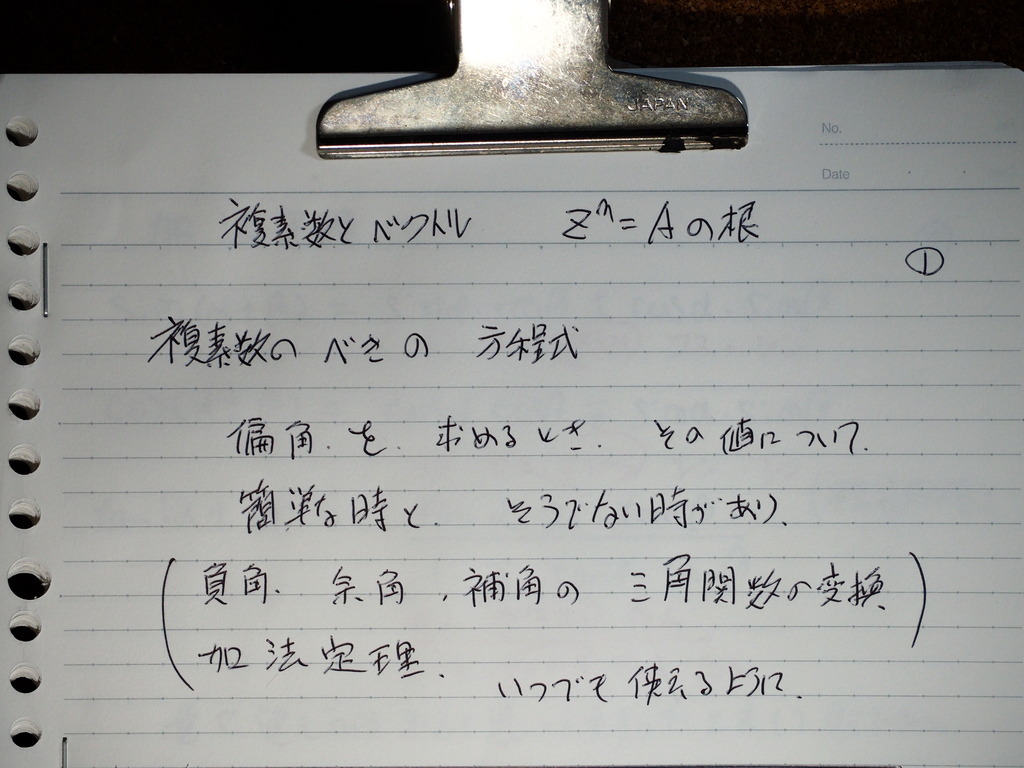 JAPAN
No.
Date
複素数とベクトル zⁿ = A の根
①
複素数の べきの 方程式
偏角を. 求めるとき. その値について.
簡単な時と. そうでない時があり、
(負角. 余角, 補角の 三角関数の変換
加法定理.)
いつでも使えるように.